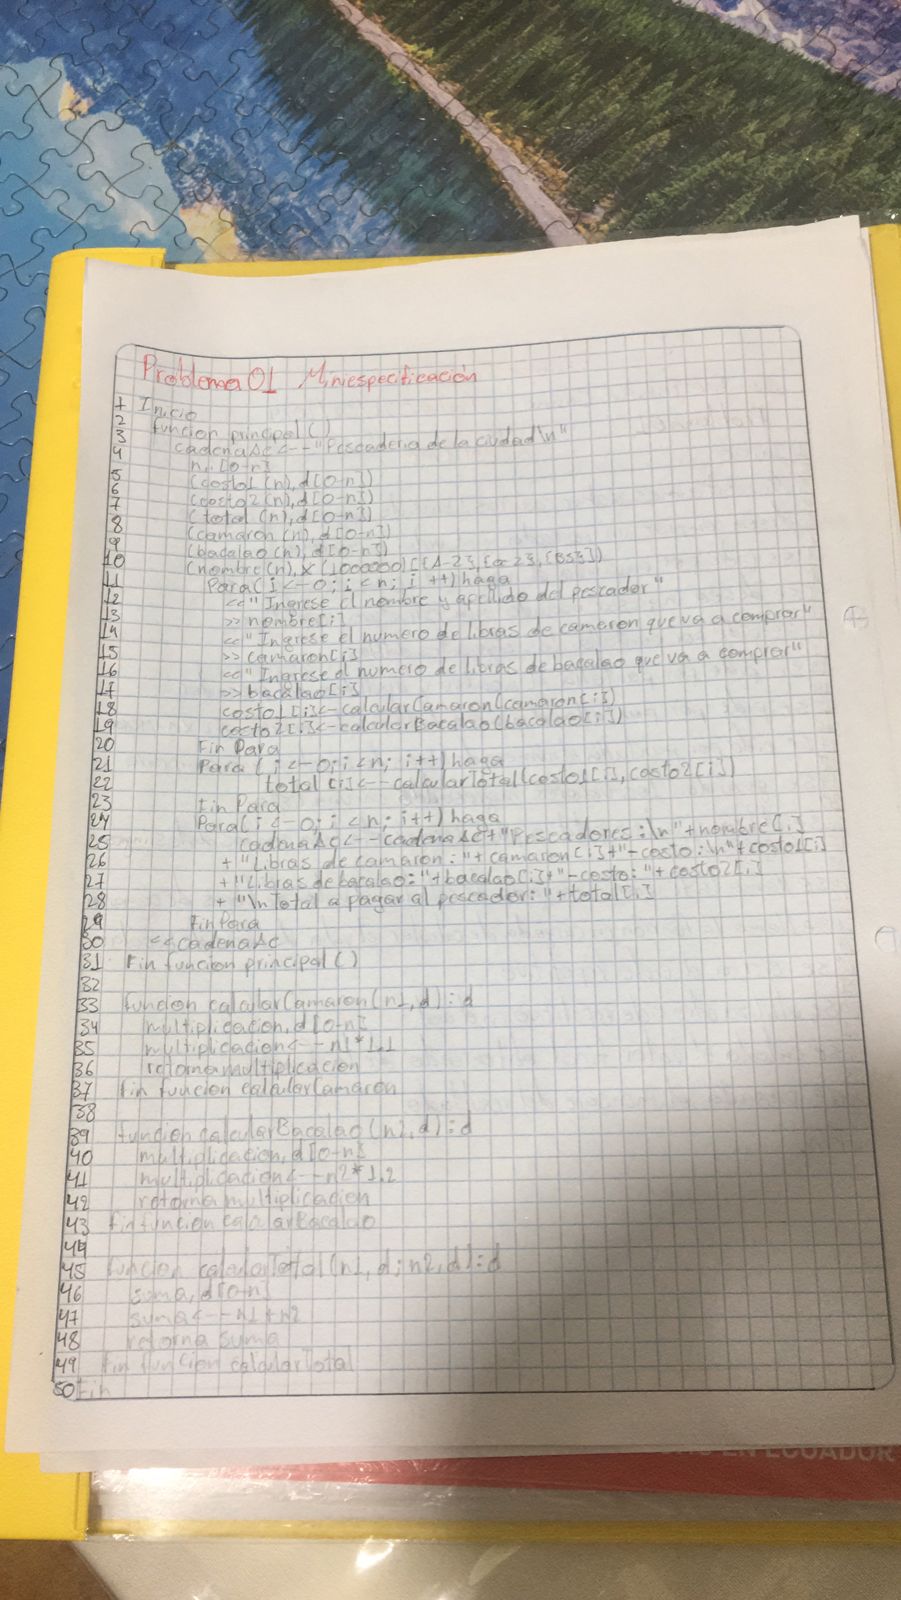 Problema 01 Miniespecificación
1 Inicio
2 funcion principal()
3 cadenaAc<--"Pescaderia de la ciudad\n"
4 n, [0-n]
5 (costo1(n),d[0-n])
6 (costo2(n),d[0-n])
7 (total(n),d[0-n])
8 (camaron(n),d[0-n])
9 (bacalao(n),d[0-n])
10 (nombre(n),x(1000000)
11 Para(i<-0;i<n; i++)haga
12 <<"Ingrese el nombre y apellido del pescador"
13 >>nombre[i]
14 <<"Ingrese el numero de libras de camaron que va a comprar"
15 >>camaron[i]
16 <<"Ingrese el numero de libras de bacalao que va a comprar"
17 >>bacalao[i]
18 costo1[i]<-calcularCamaron(camaron[i])
19 costo2[i]<-calcularBacalao(bacalao[i])
20 Fin Para
21 Para(i<-0;i<n; i++)haga
22 total[i]<--calcularTotal(costo1[i],costo2[i])
23 Fin Para
24 Para(i<-0;i<n; i++)haga
25 cadenaAc<--cadenaAc+"Pescadores:\n"+nombre[i]
26 +"Libras de camaron:"+camaron[i]+"-costo:\n"+costo1[i]
27 +"Libras de bacalao:"+bacalao[i]+"-costo:"+costo2[i]
28 +"\nTotal a pagar al pescador:"+total[i]
29 Fin Para
30 <<cadenaAc
31 Fin funcion principal()
32
33 funcion calcularCamaron(n1,d):d
34 multiplicacion,d[0-n]
35 multiplicacion<--n1*1.1
36 retorna multiplicacion
37 fin funcion calcularCamaron
38
39 funcion calcularBacalao(n1,d):d
40 multiplicacion,d[0-n]
41 multiplicacion<--n2*1.2
42 retorna multiplicacion
43 fin funcion calcularBacalao
44
45 funcion calcularTotal(n1,d;n2,d):d
46 suma,d[0-n]
47 suma<--n1+n2
48 retorna suma
49 fin funcion calcularTotal
50 Fin
EN ECUADOR